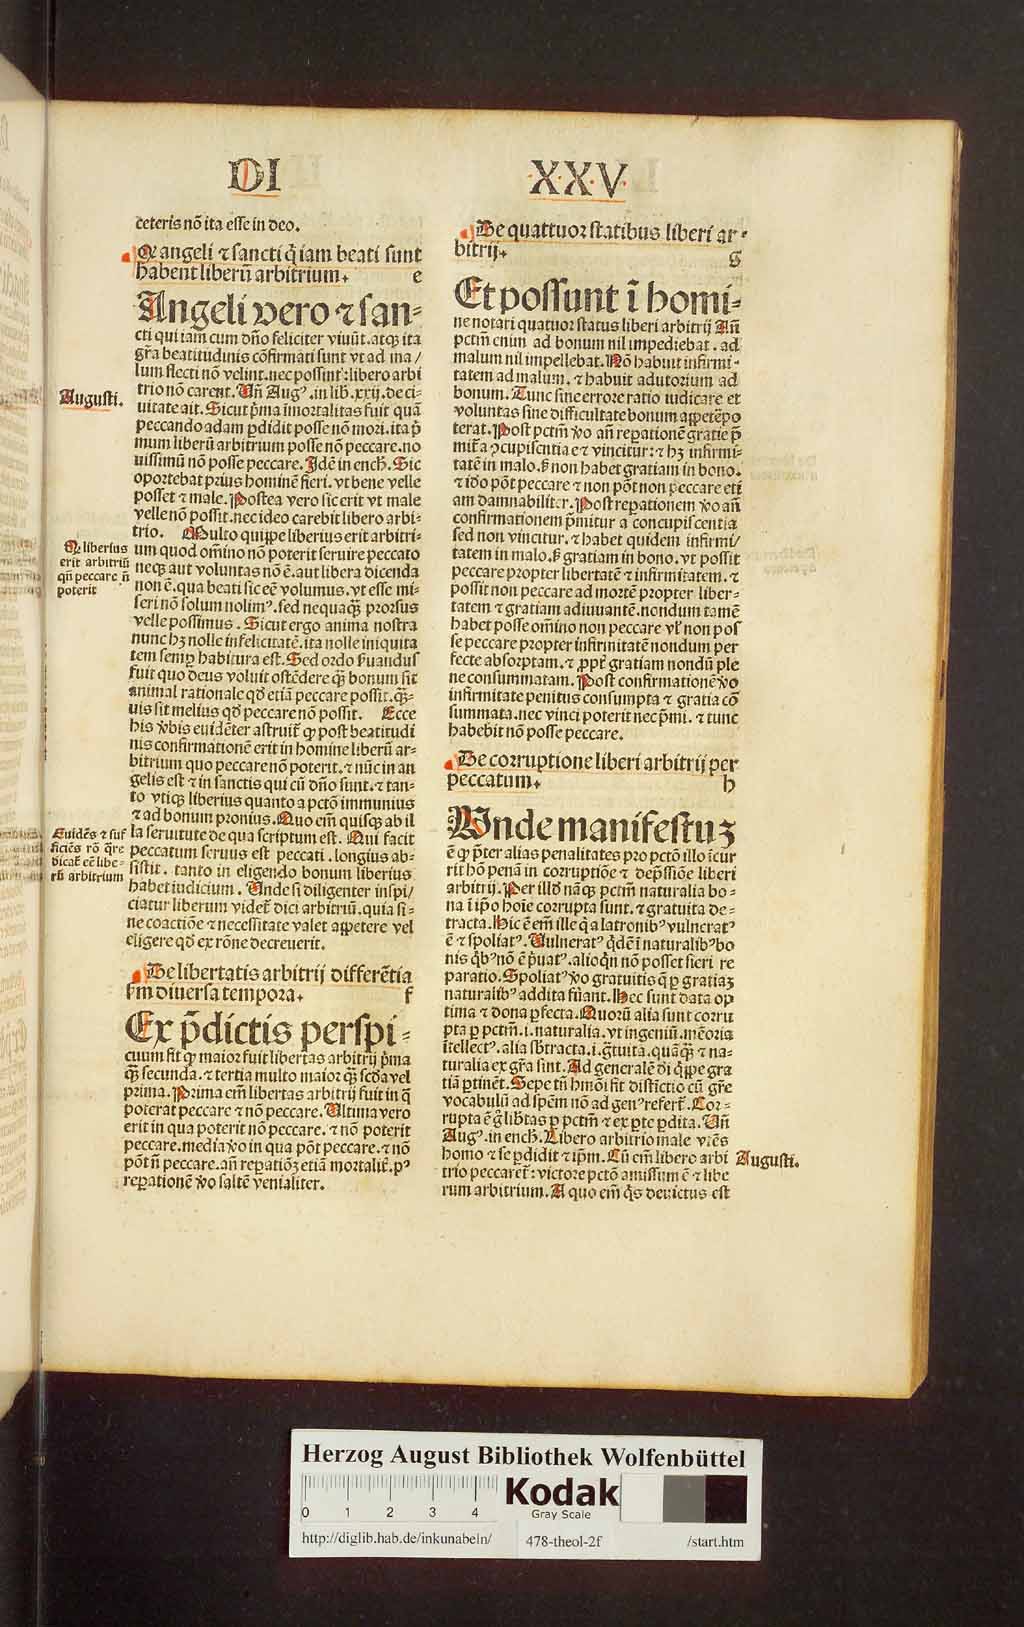 DI
XXV
ceteris nō ita esse in deo.
Ꝙ angeli ⁊ sancti q̇ iam beati sunt
habent liberū arbitrium. e
Angeli vero ⁊ san-
cti qui iam cum dño feliciter viuūt. atqꝫ ita
gr̄a beatitudinis cōfirmati sunt vt ad ma/
lum flecti nō velint. nec possint: libero arbi
trio nō carent. Vñ Augꝰ. in lib. xxij. de ci-
uitate ait. Sicut p̄ma īmortalitas fuit quā
peccando adam ꝑdidit posse nō mori. ita p̄
mum liberū arbitrium posse nō peccare. no
uissimū nō posse peccare. Idē in ench. Sic
oportebat prius hominē fieri. vt bene velle
posset ⁊ male. Postea vero sic erit vt male
velle nō possit. nec ideo carebit libero arbi-
trio. Multo quippe liberius erit arbitri-
um quod om̄ino nō poterit seruire peccato
neqꝫ aut voluntas nō ē. aut libera dicenda
non ē. qua beati sic eē volumus. vt esse mi-
seri nō solum nolimꝰ. sed nequaqꝫ̄ prorsus
velle possimus. Sicut ergo anima nostra
nunc hꝫ nolle infelicitatē. ita nolle iniquita
tem semꝑ habitura est. Sed ordo ẜuandus
fuit quo deus voluit ostēdere qꝫ̄ bonum sit
animal rationale qd̛ etiā peccare possit. qꝫ̄-
uis sit melius qd̛ peccare nō possit. Ecce
his v̛bis euidēter astruit̄ ꝙ post beatitudi
nis confirmationē erit in homine liberū ar-
bitrium quo peccare nō poterit. ⁊ nūc in an
gelis est ⁊ in sanctis qui cū dño sunt. ⁊ tan-
to vtiqꝫ liberius quanto a pctō immunius
⁊ ad bonum pronius. Quo em̄ quisqꝫ ab il
la seruitute de qua scriptum est. Qui facit
peccatum seruus est peccati. longius ab-
sistit. tanto in eligendo bonum liberius
habet iudicium. Unde si diligenter inspi/
ciatur liberum videt̄ dici arbitriū. quia si-
ne coactiōe ⁊ necessitate valet appetere vel
eligere qd̛ ex rōne decreuerit.
De libertatis arbitrij differētia
ẜm diuersa tempora. f
Ex p̄dictis perspi-
cuum fit ꝙ maior fuit libertas arbitrij p̄ma
qꝫ̄ secunda. ⁊ tertia multo maior qꝫ̄ scd̛a vel
prima. Prima em̄ libertas arbitrij fuit in q̄
poterat peccare ⁊ nō peccare. Ultima vero
erit in qua poterit nō peccare. ⁊ nō poterit
peccare. media v̛o in qua pōt peccare. ⁊ nō
pōt ñ peccare. añ reꝑatiōꝫ etiā mortalit̄. pꝰ
reꝑationē v̛o saltē venialiter.
Augusti.
Ꝙ liberius
erit arbitriū
qñ peccare ñ
poterit
Euidēs ⁊ suf
ficiēs rō q̄re
dicat̄ eē libe-
rū arbitrium
De quattuor statibus liberi ar-
bitrij. g
Et possunt ī homi-
ne notari quatuor status liberi arbitrij Añ
pctm̄ enim ad bonum nil impediebat. ad
malum nil impellebat. Nō habuit infirmi-
tatem ad malum. ⁊ habuit adiutorium ad
bonum. Tunc sine errore ratio iudicare et
voluntas sine difficultate bonum appetē po
terat. Post pctm̄ v̛o añ reꝑationē gratie p̄
mit̄ a ꝯcupiscentia et vincitur: ⁊ hꝫ infirmi-
tatē in malo. sꝫ non habet gratiam in bono.
⁊ iō pōt peccare ⁊ non pōt non peccare eti
am damnabiliter. Post reꝑationem v̛o añ
confirmationem p̄mitur a concupiscentia
sed non vincitur. ⁊ habet quidem infirmi/
tatem in malo. sꝫ gratiam in bono. vt possit
peccare propter libertatē ⁊ infirmitatem. ⁊
possit non peccare ad mortē propter liber-
tatem ⁊ gratiam adiuuantē. nondum tamē
habet posse om̄ino non peccare vl̛ non pos
se peccare propter infirmitatē nondum per
fecte absorptam. ⁊ ꝓpt̄ gratiam nondū ple
ne consummatam. Post confirmationē v̛o
infirmitate penitus consumpta ⁊ gratia cō
summata. nec vinci poterit nec p̄mi. ⁊ tunc
habebit nō posse peccare.
De corruptione liberi arbitrij per
peccatum. h
Unde manifestuꝫ
ē ꝙ p̄ter alias penalitates pro pctō illo īcur
rit hō penā in corruptiōe ⁊ dep̄ssiōe liberi
arbitrij. Per illd̛ nāqꝫ pctm̄ naturalia bo-
na ī ip̄o hoīe corrupta sunt. ⁊ gratuita de-
tracta. Hic ē em̄ ille q̇ a latronibꝰ vulneratꝰ
ē ⁊ spoliatꝰ. Vulneratꝰ qd̛ē ī naturalibꝰ bo
nis qͥbꝰ nō ē p̄uatꝰ. alioqͥn nō posset fieri re
paratio. Spoliatꝰ v̛o gratuitis q̄ ꝑ gratiaꝫ
naturalibꝰ addita fūant. Hec sunt data op
tima ⁊ dona ꝑfecta. Quorū alia sunt corru
pta ꝑ pctm̄. i. naturalia. vt ingeniū. mēoria
ītellectꝰ. alia sb̛tracta. i. g̃tuita. quāqꝫ̄ ⁊ na-
turalia ex gr̄a sint. Ad generalē dī qͥppe gra
tiā ꝑtinēt. Sepe tñ hm̄ōi fit distīctio cū gr̄e
vocabulū ad spēm nō ad genꝰ refert̄. Cor-
rupta ē g̊ lib̛tas ꝑ pctm̄ ⁊ ex ꝑte ꝑdita. Vñ
Augꝰ. in ench. Libero arbitrio male vtēs
homo ⁊ se ꝑdidit ⁊ ip̄m. Cū em̄ libero arbi
trio peccaret̄: victore pctō amissum ē ⁊ libe
rum arbitrium. A quo em̄ qͥs deuictus est
Augusti.
Herzog August Bibliothek Wolfenbüttel
0 1 2 3 4
Kodak
Gray Scale
http://diglib.hab.de/inkunabeln/ 478-theol-2f /start.htm